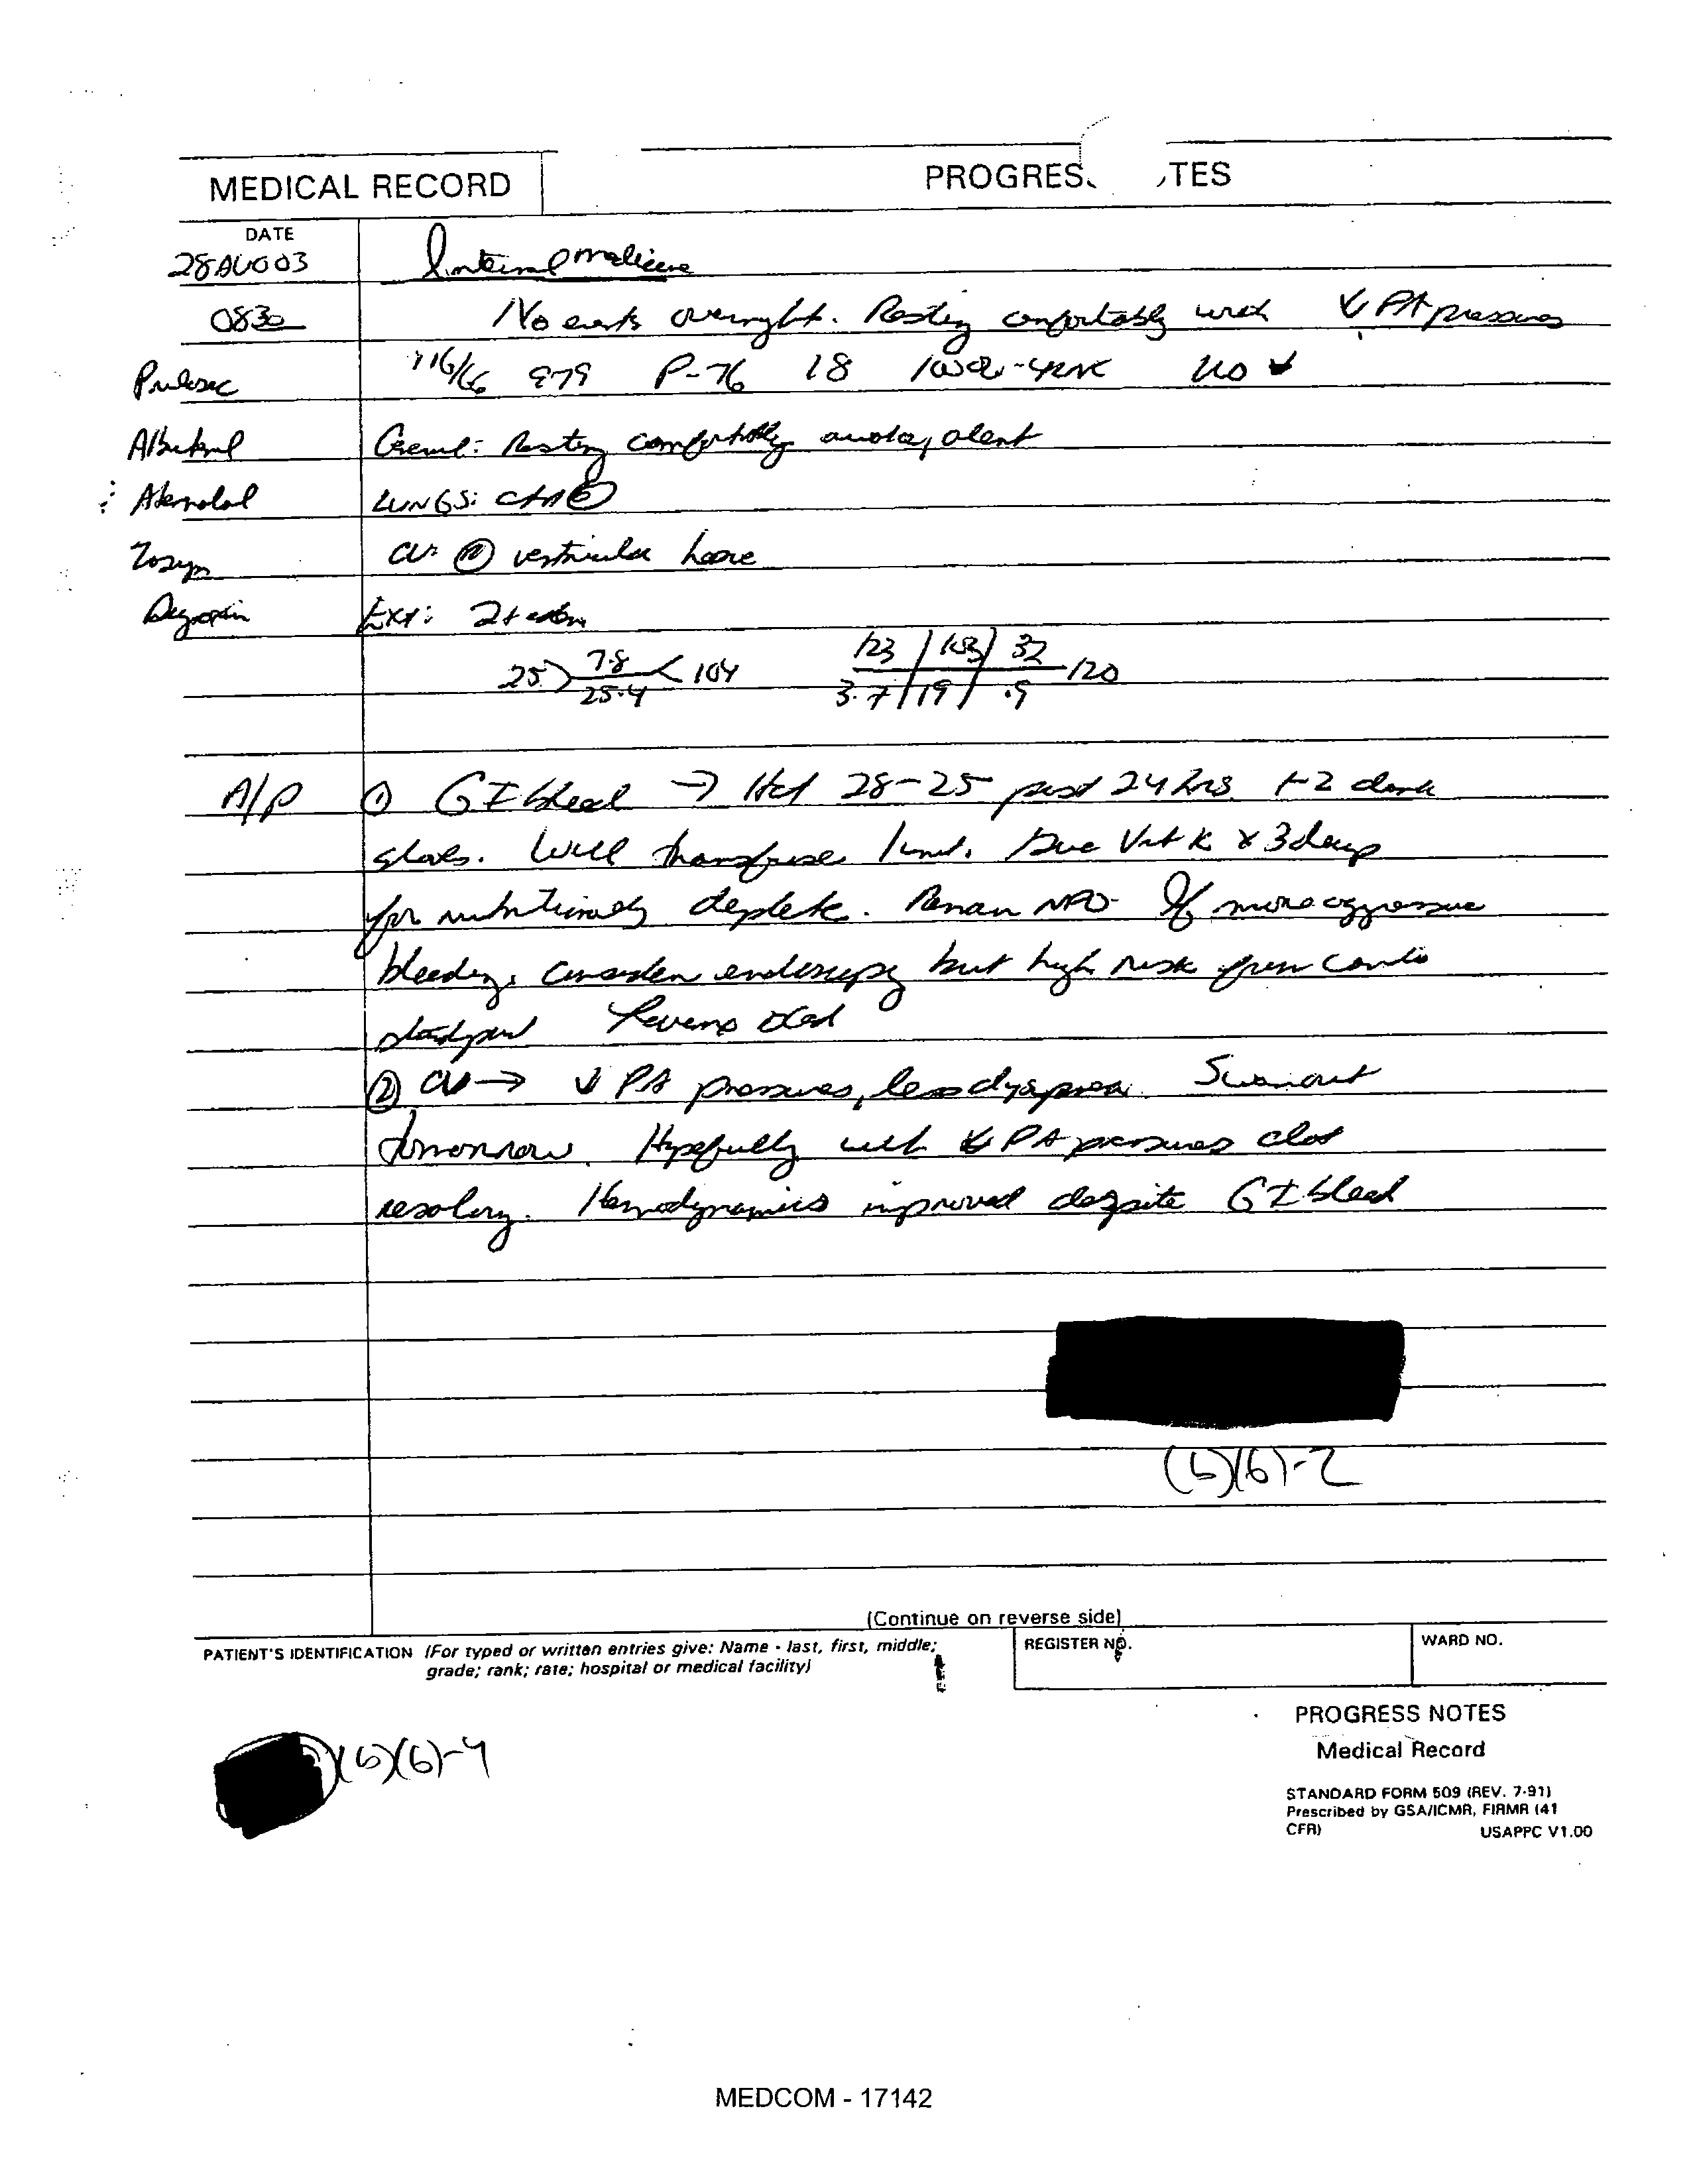 MEDICAL RECORD
PROGRES TES
DATE
28AUG03 Internal medicine
0830 No events overnight. Resting comfortably with ↓ PA pressures
Prilosec 116/66 979 P-76 18 100% - 4L NC
Albuterol General: Resting comfortably awake, alert
Atenolol LUNGS: CTA Ⓑ
Zosyn CV: ventricular heave
Digoxin Ext: 2+ edema
25 > 7.8 / 25.4 < 104 123 / 103 / 32 / 3.7 / 19 / .9 120
A/P ① GI bleed → Hct 28-25 past 24 hrs. + 2 dark
stools. Will transfuse 1 unit. Give Vit K x 3 days
for nutritionally deplete. Remain NPO. If more aggressive
bleeding, consider endoscopy but high risk from cardio
standpoint
② CV → ↓ PA pressures, less dyspnea. Swan out
tomorrow. Hopefully with ↓ PA pressures clot
resolving. Hemodynamics improved despite GI bleed
(b)(6)-2
(Continue on reverse side)
PATIENT'S IDENTIFICATION (For typed or written entries give: Name - last, first, middle;
grade; rank; rate; hospital or medical facility)
REGISTER NO.
WARD NO.
(b)(6)-4
PROGRESS NOTES
Medical Record
STANDARD FORM 509 (REV. 7-91)
Prescribed by GSA/ICMR, FIRMR (41
CFR) USAPPC V1.00
MEDCOM - 17142